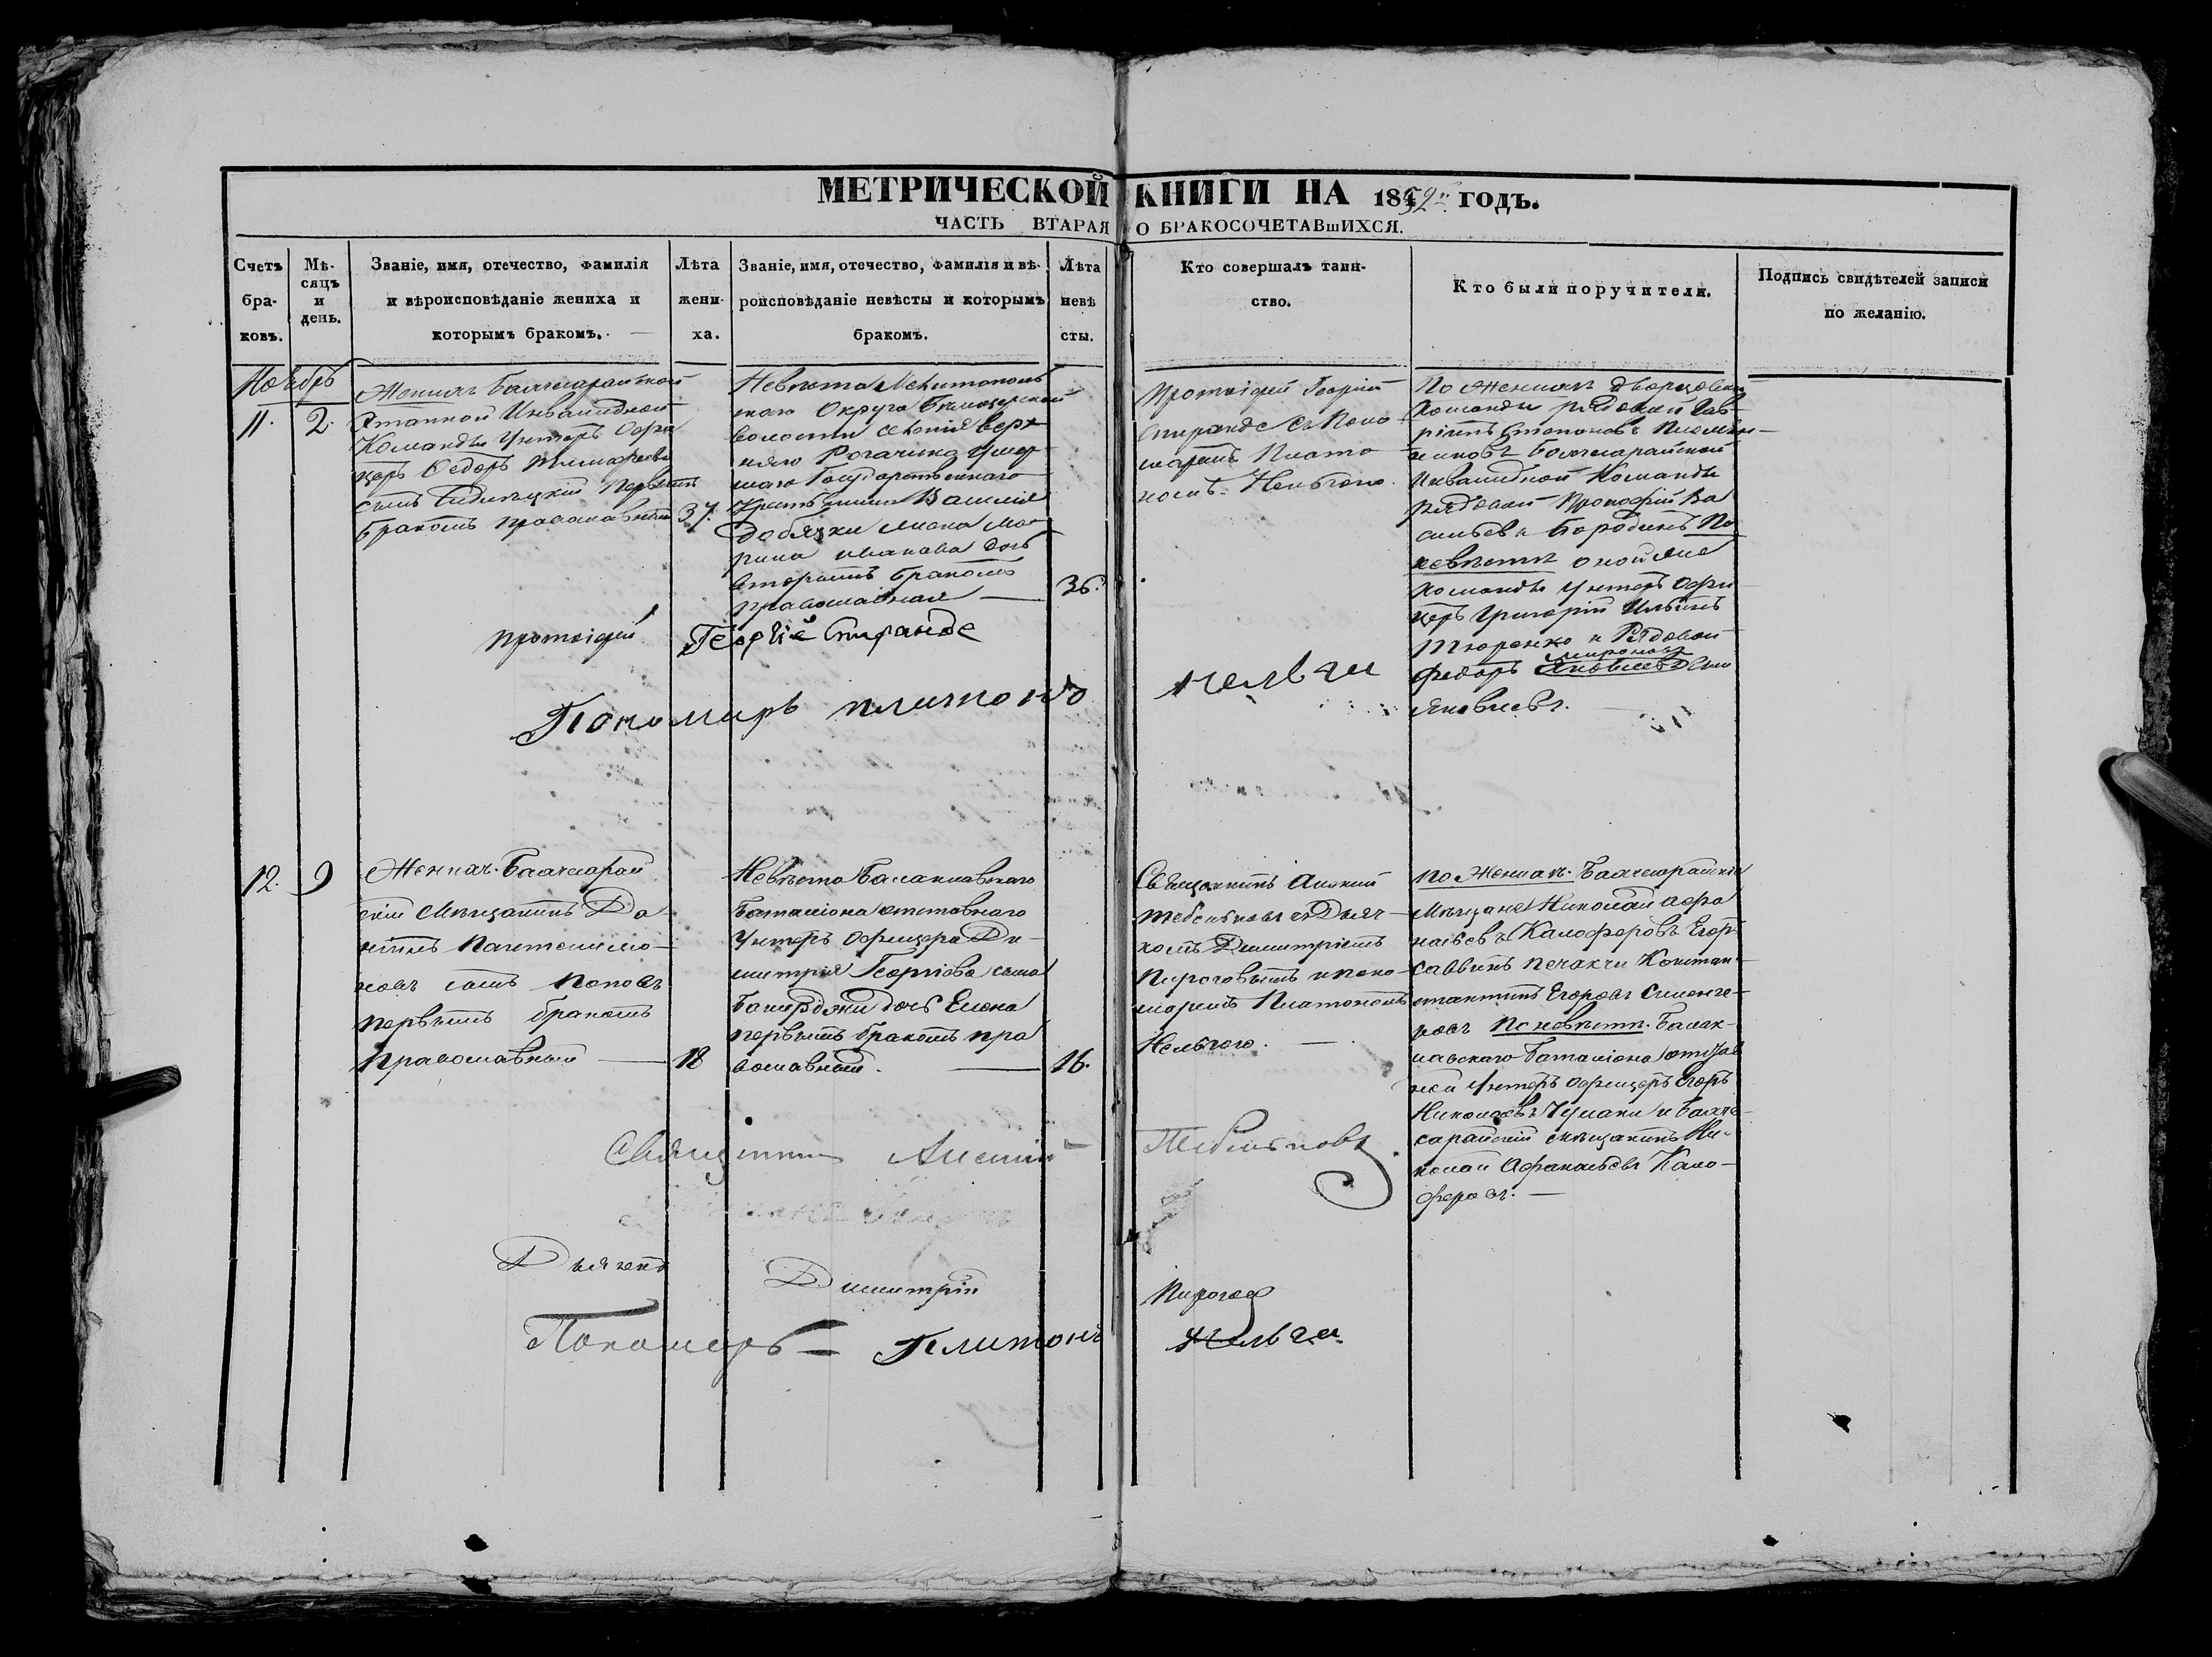 МЕТРИЧЕСКОЙ КНИГИ НА 1852 ГОДЪ.
ЧАСТЬ ВТАРАЯ О БРАКОСОЧЕТАВШИХСЯ.
Счетъ бра- ковъ.
Мѣ- сяцъ и день.
Званіе, имя, отечество, фамилія
и вѣроисповѣданіе жениха и
которымъ бракомъ.
Лѣта жени- ха.
Званіе, имя, отечество, фамилія и вѣ-
роисповѣданіе невѣсты и которымъ
бракомъ.
Лѣта невѣ сты.
Кто совершалъ таин-
ство.
Кто были поручители.
Подпись свидѣтелей записи
по желанію.
Ноябрь
11. 2.
Женихъ Бахчисарайской
Этапной Инвалидной
Команды Унтеръ Офи
церъ Федоръ
сынъ первымъ
бракомъ православный 37.
Невѣста Мелитополь
скаго Округа Бѣлозерской
волости селенія верх
няго Рогачика умер
шаго Государственнаго
Крестьянина Василія
жена Ма-
рина иванова дочь
вторымъ бракомъ
православная 36.
Протоіерей Георгій
Спиранде съ Поно-
маремъ Плато
номъ Нельгого.
По Женихѣ Дворцовой
команды рядовой Гав-
ріилъ Степановъ
Бахчисарайской
Инвалидной Команды
Рядовой Прокофій Ва
сильевъ Бородинъ По
невѣстѣ оной же
команды Унтеръ Офи
церъ Григорій Ильинъ
Тюренко и Рядовой
Федоръ
Яковлевъ.
протоіерей Георгіе Спиранде
Пономарь платонъ нельги
12. 9
Женихъ Бахчисарай
скій Мѣщанинъ До
Пантелимо-
новъ сынъ Поповъ
первымъ бракомъ
Православный 18
Невѣста Балаклавскаго
Баталіона отставнаго
Унтеръ Офицера Ди-
митрія Георгіева сына
дочь Елена
первымъ бракомъ пра
вославный. 16.
Священникъ Алексій
съ Дьяч-
комъ Димитріемъ
Пироговымъ и поно-
маремъ Платономъ
Нельгого.
по Женихѣ. Бахчисарайскіе
Мѣщане Николай Афа
насьевъ Калафоровъ Егоръ
Саввинъ Печакчи Констан
Егоровъ
По невѣстѣ. Балак-
лавскаго Баталіона отстав
ной Унтеръ офицеръ Егоръ
Николаевъ Чумаки и Бахче-
сарайскій мѣщанинъ Ни-
колай Афанасьевъ Кало-
феровъ.
Священникъ Алексій
Дьячекъ Димитрій Пирогов
Пономаръ Платонъ нельги